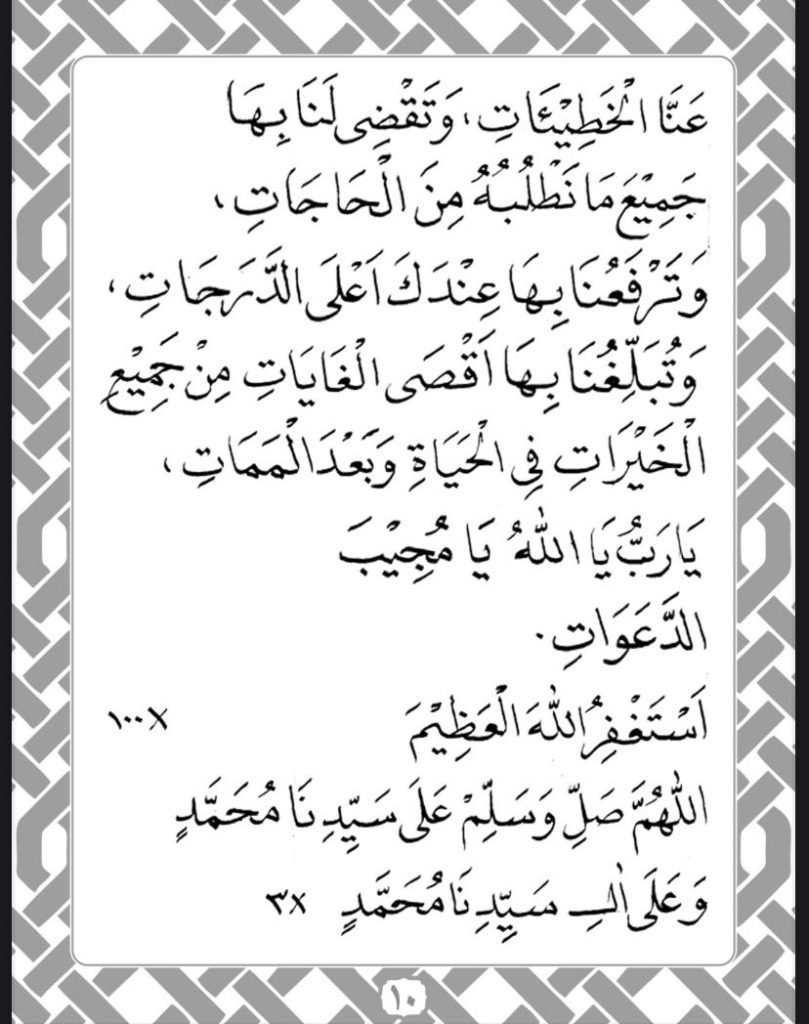 عَنَّا الْخَطِيْئَاتِ، وَتَقْضِى لَنَا بِهَا
جَمِيْعَ مَا نَطْلُبُهُ مِنَ الْحَاجَاتِ،
وَتَرْفَعُنَا بِهَا عِنْدَكَ اَعْلَى الدَّرَجَاتِ،
وَتُبَلِّغُنَا بِهَا اَقْصَى الْغَايَاتِ مِنْ جَمِيْعِ
الْخَيْرَاتِ فِى الْحَيَاةِ وَبَعْدَ الْمَمَاتِ،
يَا رَبُّ يَا اَللهُ يَا مُجِيْبَ
الدَّعَوَاتِ.
اَسْتَغْفِرُ اللهَ الْعَظِيْمَ ١٠٠X
اَللّٰهُمَّ صَلِّ وَسَلِّمْ عَلَى سَيِّدِنَا مُحَمَّدٍ
وَعَلَى اٰلِ سَيِّدِنَا مُحَمَّدٍ ٣X
١٠